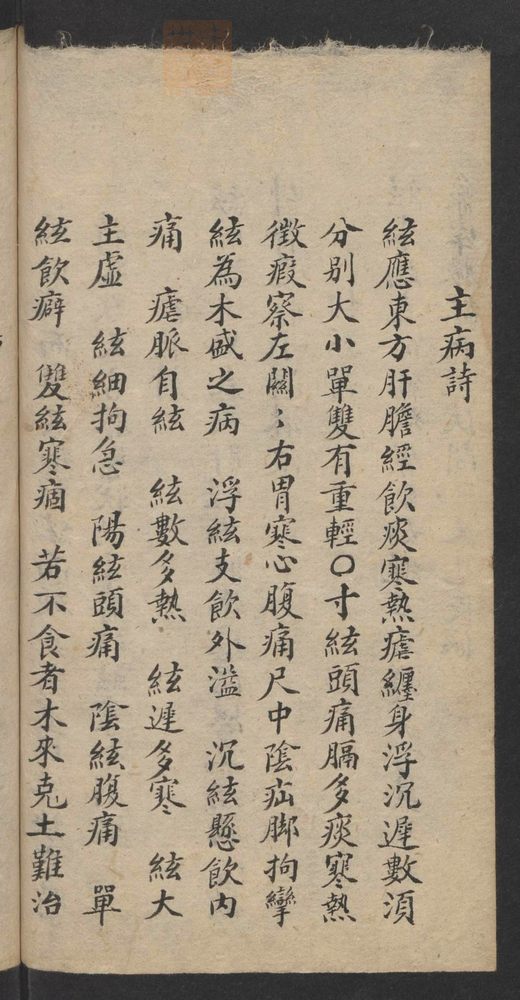 主病詩
絃應東方肝膽經飲痰寒熱瘧纏身浮沉遲數須
分別大小單雙有重輕〇寸絃頭痛膈多痰寒熱
徴瘕察左關〻右胃寒心腹痛尺中陰疝脚拘攣
絃為木盛之病 浮絃支飲外溢 沉絃懸飲内
痛 瘧脈自絃 絃數多熱 絃遲多寒 絃大
主虛 絃細拘急 陽絃頭痛 陰絃腹痛 單
絃飲癖 雙絃寒痼 若不食者木來克土難治